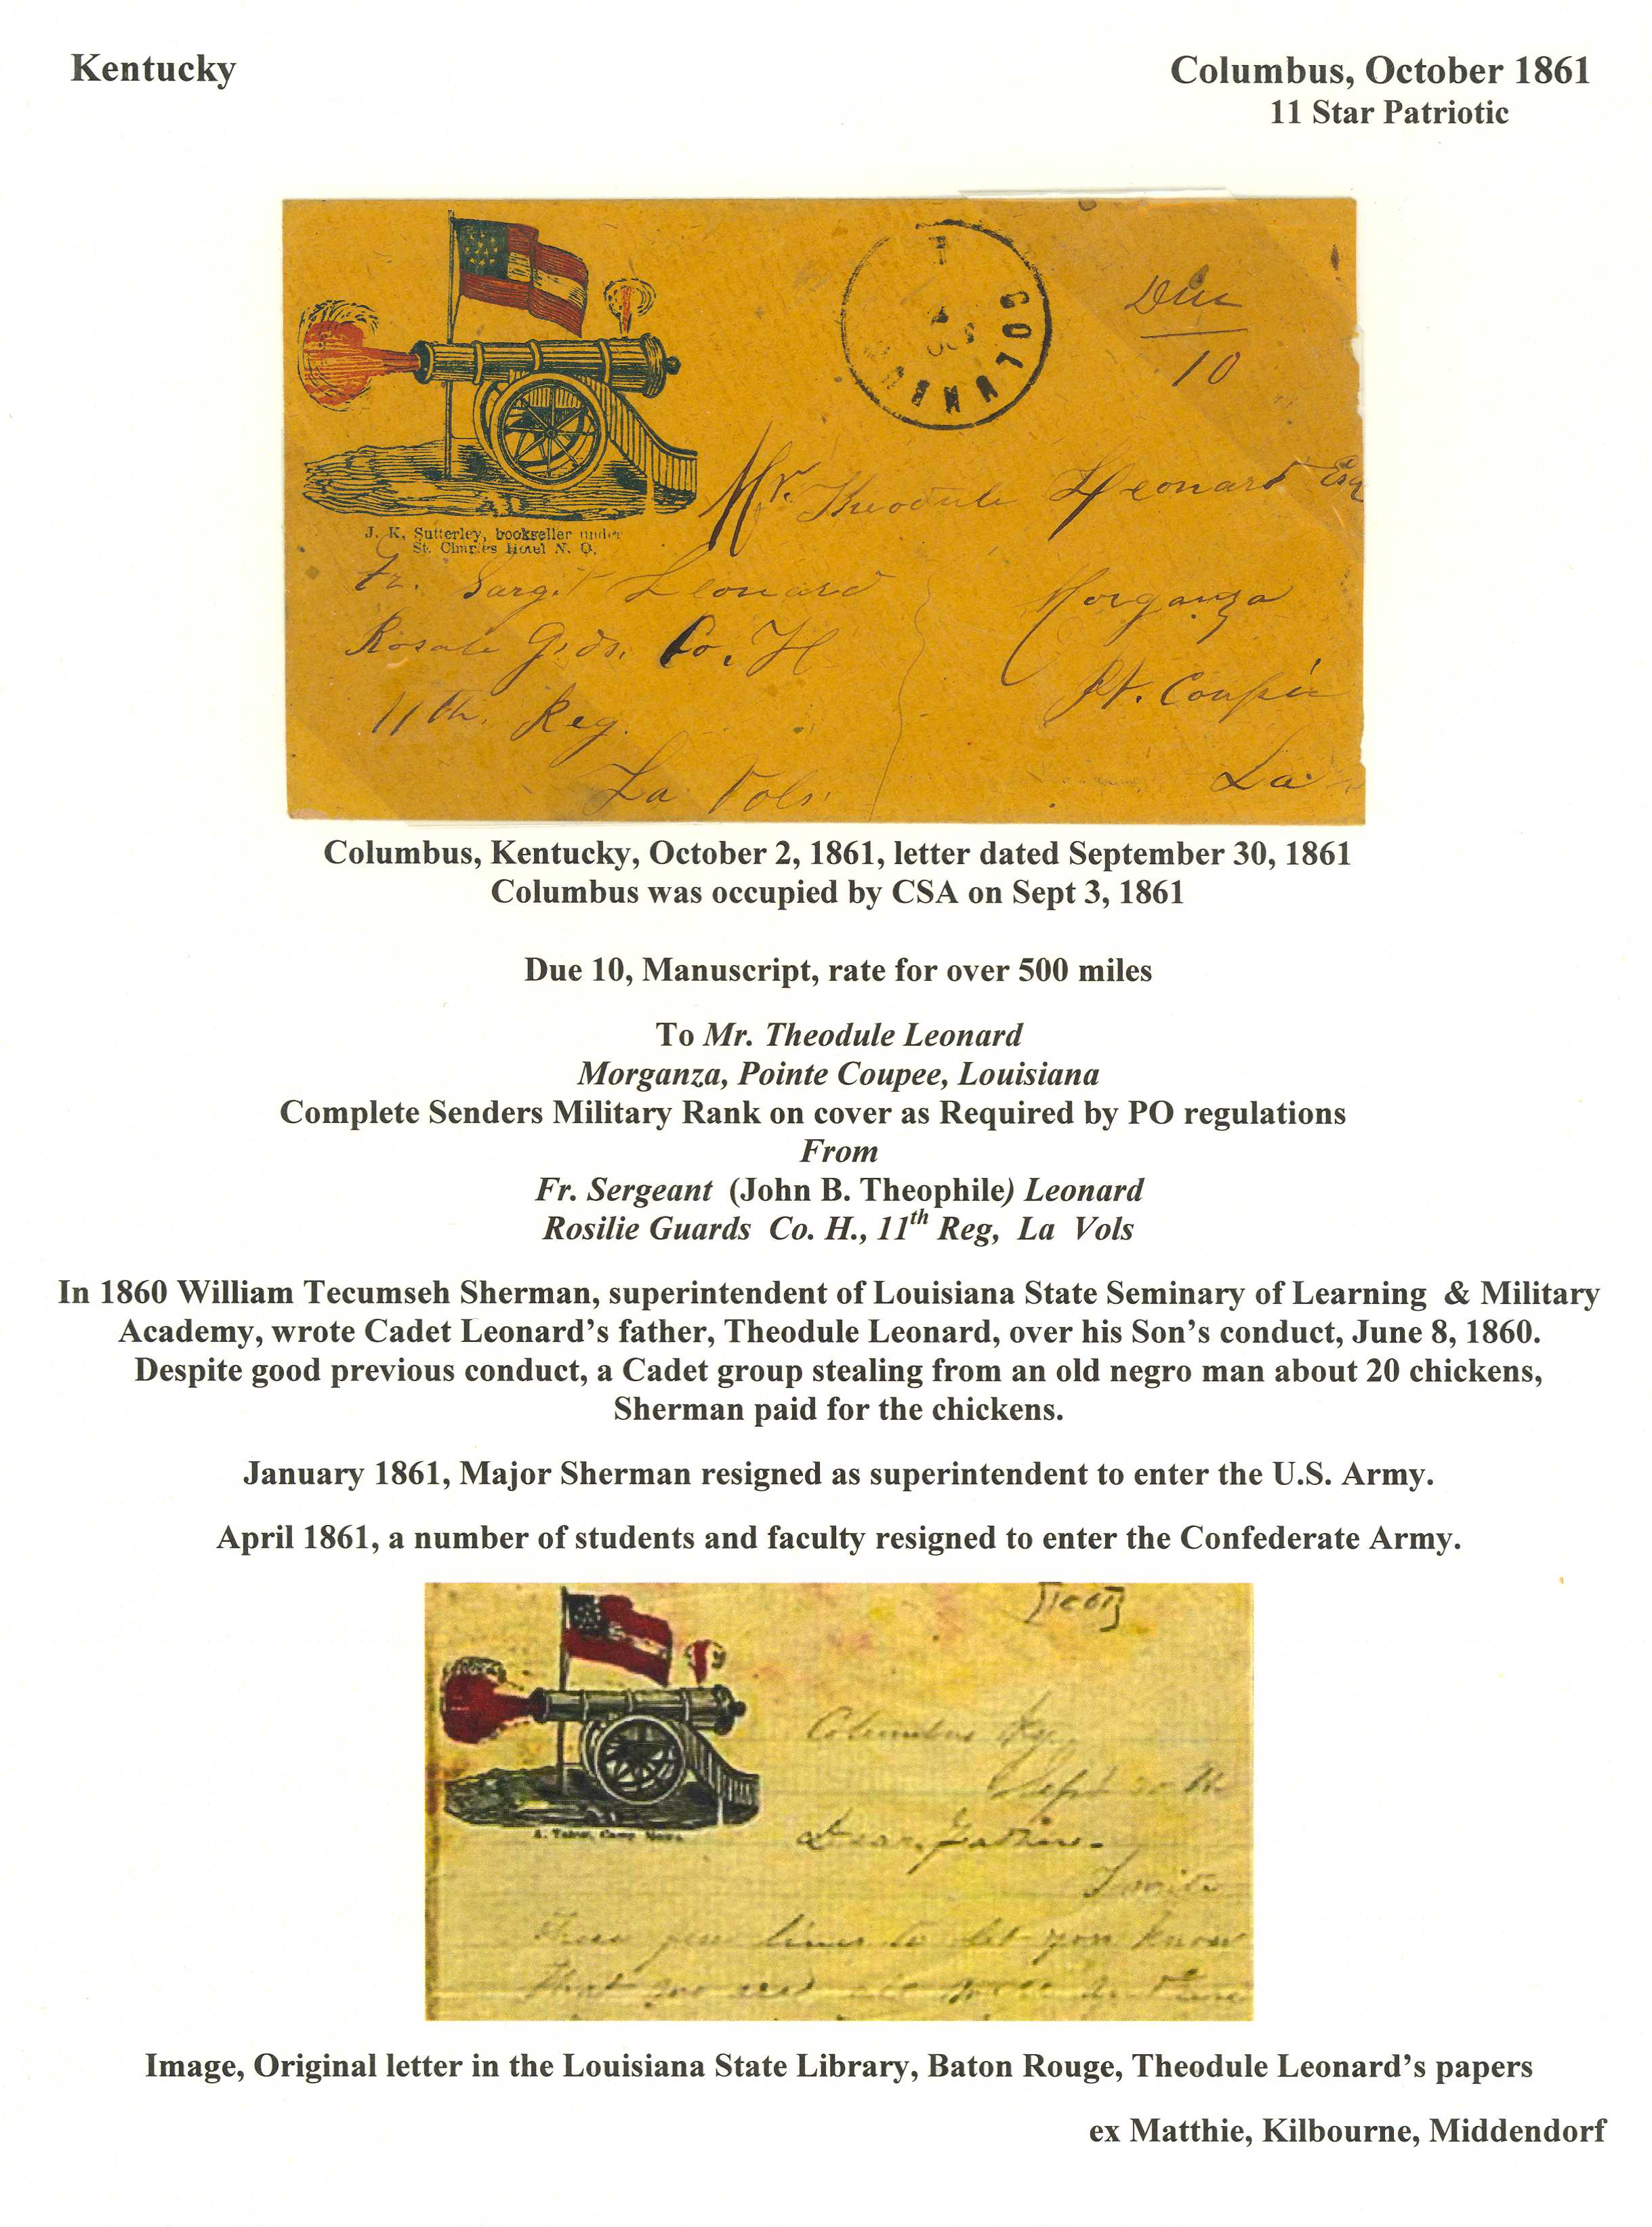 Kentucky
Columbus, October 1861
11 Star Patriotic
COLUMBU
Due
10
J. K. Sutterley, bookseller under
St. Charles Hotel N. O.
Mr. Theodule Leonard Esq
Fr. Sargt Leonard
Morganza
Rosale Grds. Co. H
Pt. Coupée
11th. Reg.
La Vols.
La
Columbus, Kentucky, October 2, 1861, letter dated September 30, 1861
Columbus was occupied by CSA on Sept 3, 1861
Due 10, Manuscript, rate for over 500 miles
To Mr. Theodule Leonard
Morganza, Pointe Coupee, Louisiana
Complete Senders Military Rank on cover as Required by PO regulations
From
Fr. Sergeant (John B. Theophile) Leonard
Rosilie Guards Co. H., 11th Reg, La Vols
In 1860 William Tecumseh Sherman, superintendent of Louisiana State Seminary of Learning & Military
Academy, wrote Cadet Leonard's father, Theodule Leonard, over his Son's conduct, June 8, 1860.
Despite good previous conduct, a Cadet group stealing from an old negro man about 20 chickens,
Sherman paid for the chickens.
January 1861, Major Sherman resigned as superintendent to enter the U.S. Army.
April 1861, a number of students and faculty resigned to enter the Confederate Army.
Columbus Ky.
Sept 30 th
Dear Father.
I write
These few lines to let you know
that we are all well
Image, Original letter in the Louisiana State Library, Baton Rouge, Theodule Leonard's papers
ex Matthie, Kilbourne, Middendorf